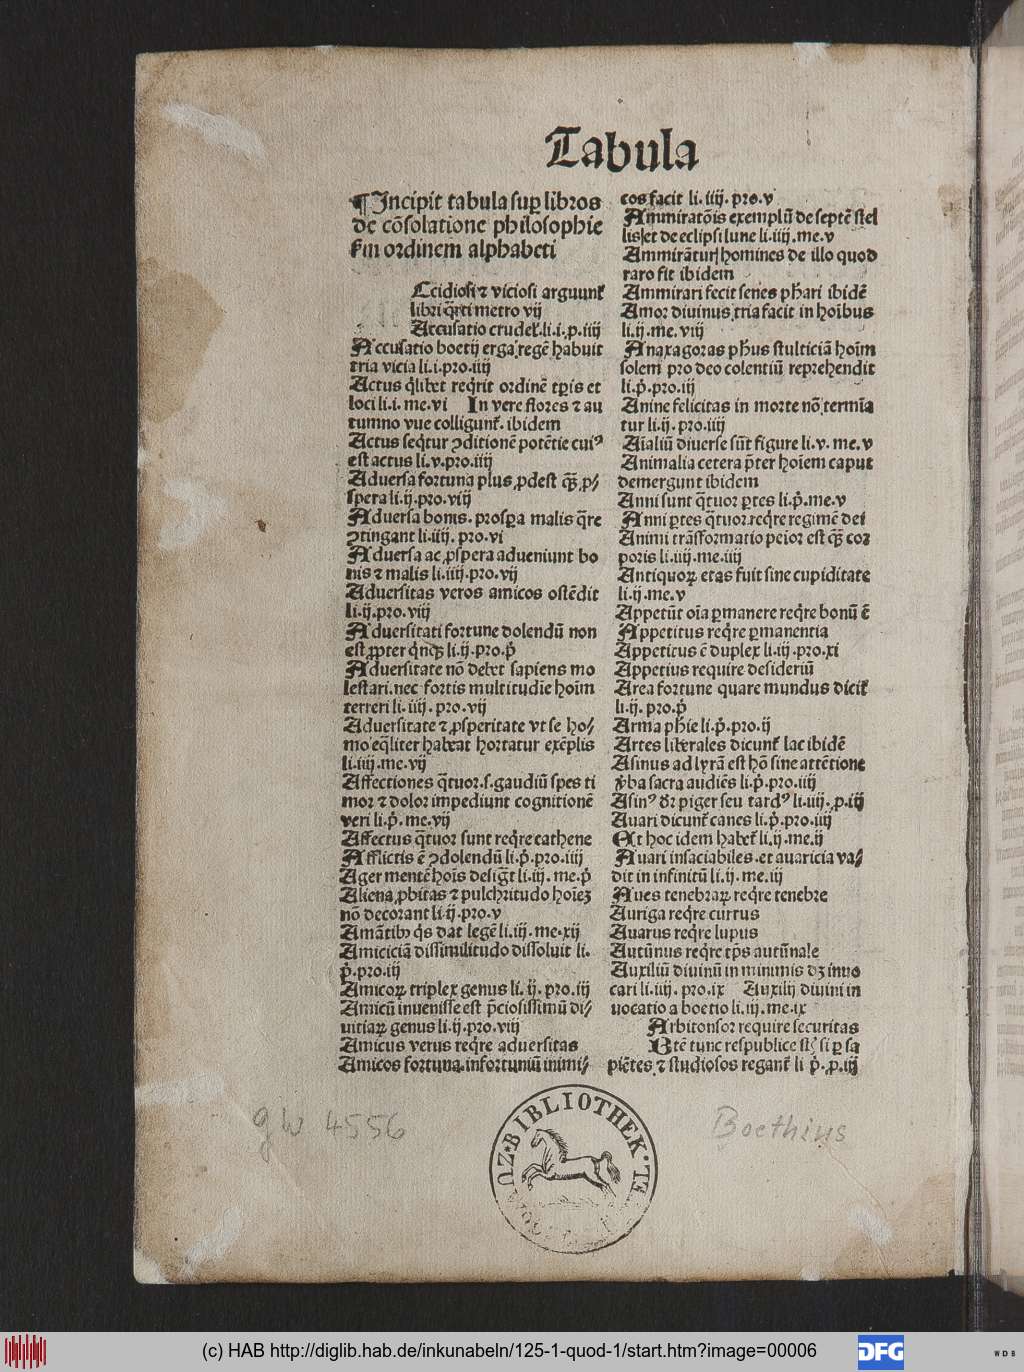 Tabula
¶Incipit tabula suꝑ libros
de cõsolatione philosophie
ẜm ordinem alphabeti
Ccidiosi ⁊ viciosi arguunt᷑
libri q̃rti metro vij
Accusatio crudel̕.li.i.p.iiij
Accusatio boetij erga regẽ habuit
tria vicia li.i.pro.iiij
Actus q̃libet reqͥrit ordinẽ tꝑis et
loci li.i.me.vi In vere flores ⁊ au
tumno vue colligunt᷑. ibidem
Actus seqͥtur ꝯditionẽ potẽtie cuiꝰ
est actus li.v.pro.iiij
Aduersa fortuna plus ꝓdest q̃ꝫ ꝓ/
spera li.ij.pro.viij
Aduersa bonis. prosꝑa malis q̃re
ꝯtingant li.iiij. pro.vi
Aduersa ac ꝓspera adueniunt bo
nis ⁊ malis li.iiij.pro.vij
Aduersitas veros amicos ostẽdit
li.ij.pro.viij
Aduersitati fortune dolendũ non
est ꝓpter qͥnqꝫ li.ij.pro.pͥ
Aduersitate nõ debet sapiens mo
lestari.nec fortis multitudĩe hoĩm
terreri li.iiij. pro.vij
Aduersitate ⁊ ꝓsperitate vt se ho/
mo eq̃liter habeat hortatur exẽplis
li.iiij.me.vij
Affectiones q̃tuor.s.gaudiũ spes ti
mor ⁊ dolor impediunt cognitionẽ
veri li.pͥ. me.vij
Affectus q̃tuor sunt reqͥre cathene
Afflictis ẽ ꝯdolendũ li.pͥ.pro.iiij
Ager mentẽ hoĩs desig̃t li.iij. me.pͥ
Aliena ꝓbitas ⁊ pulchritudo hoĩeꝫ
nõ decorant li.ij.pro.v
Amãtibꝰ qͥs dat legẽ li.iij.me.xij
Amiciciã dissimilitudo dissoluit li.
pͥ.pro.iij
Amicoꝝ triplex genus li. ij. pro.iij
Amicũ inuenisse est p̃ciosissimũ di/
uitiaꝝ genus li.ij.pro.viij
Amicus verus reqͥre aduersitas
Amicos fortuna.infortuniũ inimi/
cos facit li.iiij. pro.v
Ammiratõis exemplũ de septẽ stel
lis et de eclipsi lune li.iiij.me.v
Ammirãtur homines de illo quod
raro fit ibidem
Ammirari fecit series ph̃ari ibidẽ
Amor diuinus tria facit in hoĩbus
li.ij.me.viij
Anaxagoras ph̃us stulticiã hoĩm
solem pro deo colentiũ reprehendit
li.pͥ.pro.iij
Anine felicitas in morte nõ termĩa
tur li.ij. pro.iiij
Aĩaliũ diuerse sũt figure li.v. me.v
Animalia cetera p̃ter hoĩem caput
demergunt ibidem
Anni sunt q̃tuor ꝑtes li.pͥ.me.v
Anni ꝑtes q̃tuor.reqͥre regimẽ dei
Animi trãsformatio peior est q̃ꝫ cor
poris li.iiij.me.iij
Antiquoꝝ etas fuit sine cupiditate
li.ij.me.v
Appetũt oĩa ꝑmanere reqͥre bonũ ẽ
Appetitus reqͥre ꝑmanentia
Appeticus ẽ duplex li.iij.pro.xi
Appetius require desideriũ
Area fortune quare mundus dicit᷑
li.ij. pro.pͥ
Arma ph̃ie li.pͥ.pro.ij
Artes liberales dicunt᷑ lac ibidẽ
Asinus ad lyrã est hõ sine attẽtione
v̕ba sacra audiẽs li.pͥ.pro.iiij
Asinꝰ dr̃ piger seu tardꝰ li.iiij.ꝓ.iij
Auari dicunt᷑ canes li.pͥ.pro.iiij
Et hoc idem habet᷑ li.ij.me.ij
Auari insaciabiles.et auaricia va/
dit in infinitũ li.ij. me.iij
Aues tenebraꝝ reqͥre tenebre
Auriga reqͥre currus
Auarus reqͥre lupus
Autũnus reqͥre tp̃s autũnale
Auxiliũ diuinũ in minimis dꝫ inuo
cari li.iij. pro.ix Auxilij diuini in
uocatio a boetio li.iij.me.ix
Arbitonsor require securitas
Btẽ tunc respublice st̃ si ꝑ sa
piẽtes ⁊ studiosos regant᷑ li pͥ.ꝓ.iiij
gW 4556
Boethius
BIBLIOTHEK
(c) HAB http://diglib.hab.de/inkunabeln/125-1-quod-1/start.htm?image=00006
DFG
WDB